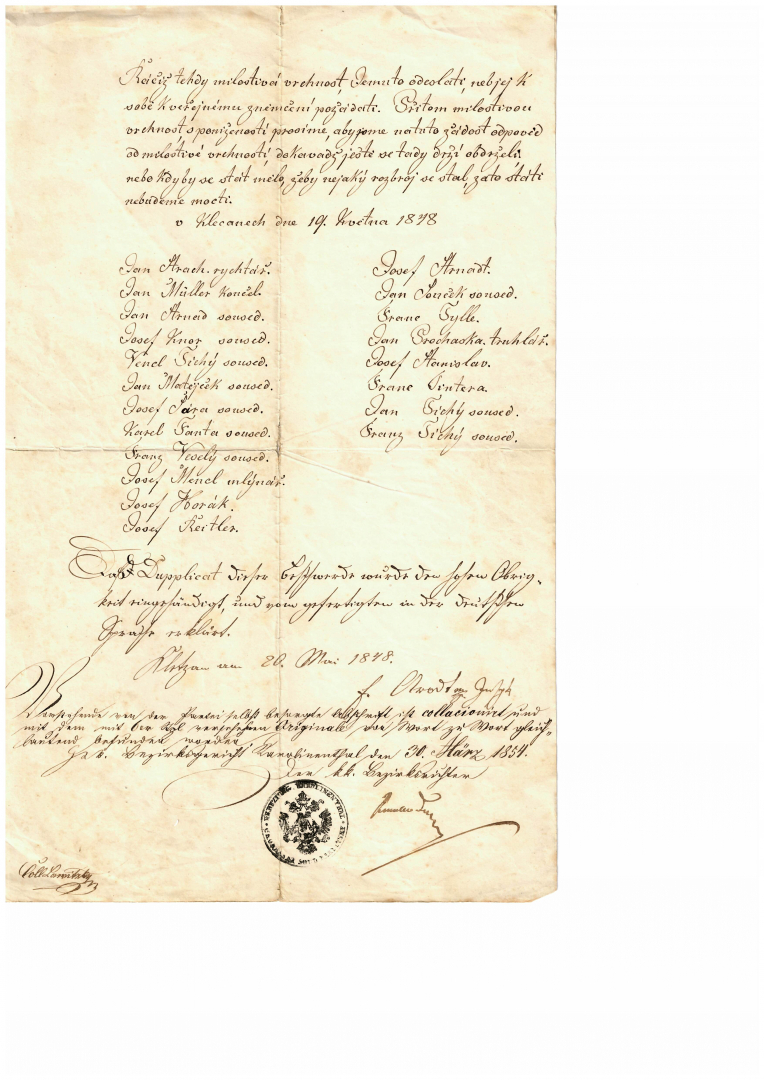 Ráčiž tehdy milostivá vrchnost Jemuto odeolati, neb jej k
sobě k veřejnému zněmčení požádati. Přitom milostivou
vrchnost, s poníženosti prosíme, abyjsme na tuto žádost odpověd
od milostivé vrchnosti, dokavadž ještě se tady drží obdrželi.
nebo kdyby se stát mělo, žeby nejaký rozbroj se stal, za to státi
nebudeme mocti.
v Klecanech dne 19. Května 1848
Jan Strach. rychtář.
Jan Müller konšel.
Jan Arnad soused.
Josef Knor soused.
Vencl Tichý soused.
Jan Matějček soused.
Josef Pára soused.
Karel Fanta soused.
Franz Veselý soused.
Josef Mencl mlýnář.
Josef Horák.
Josef Reitler.
Josef Arnadt.
Jan Souček soused.
Franc Tylle.
Jan Prochaska. truhlář.
Josef Stanislav.
Franc Pintera.
Jan Tichý soused.
Franz Tichý soused.
Daß Dupplicat dieser Beschwerde wurde den hohen Obrig-
keit eingehändigt, und vom gefertigten in der deutschen
Sprache erklärt.
Kletzan am 20. Mai 1848.
Vorstehende von der Partei selbst besorgte Abschrift ist collacionirt und
mit dem mit 6xr Stpl versehenen Originale von Wort zu Wort gleich-
lautend befunden worden
K. k. Bezirksgericht Karolinenthal den 30. März 1854.
Der kk. Bezirksrichter